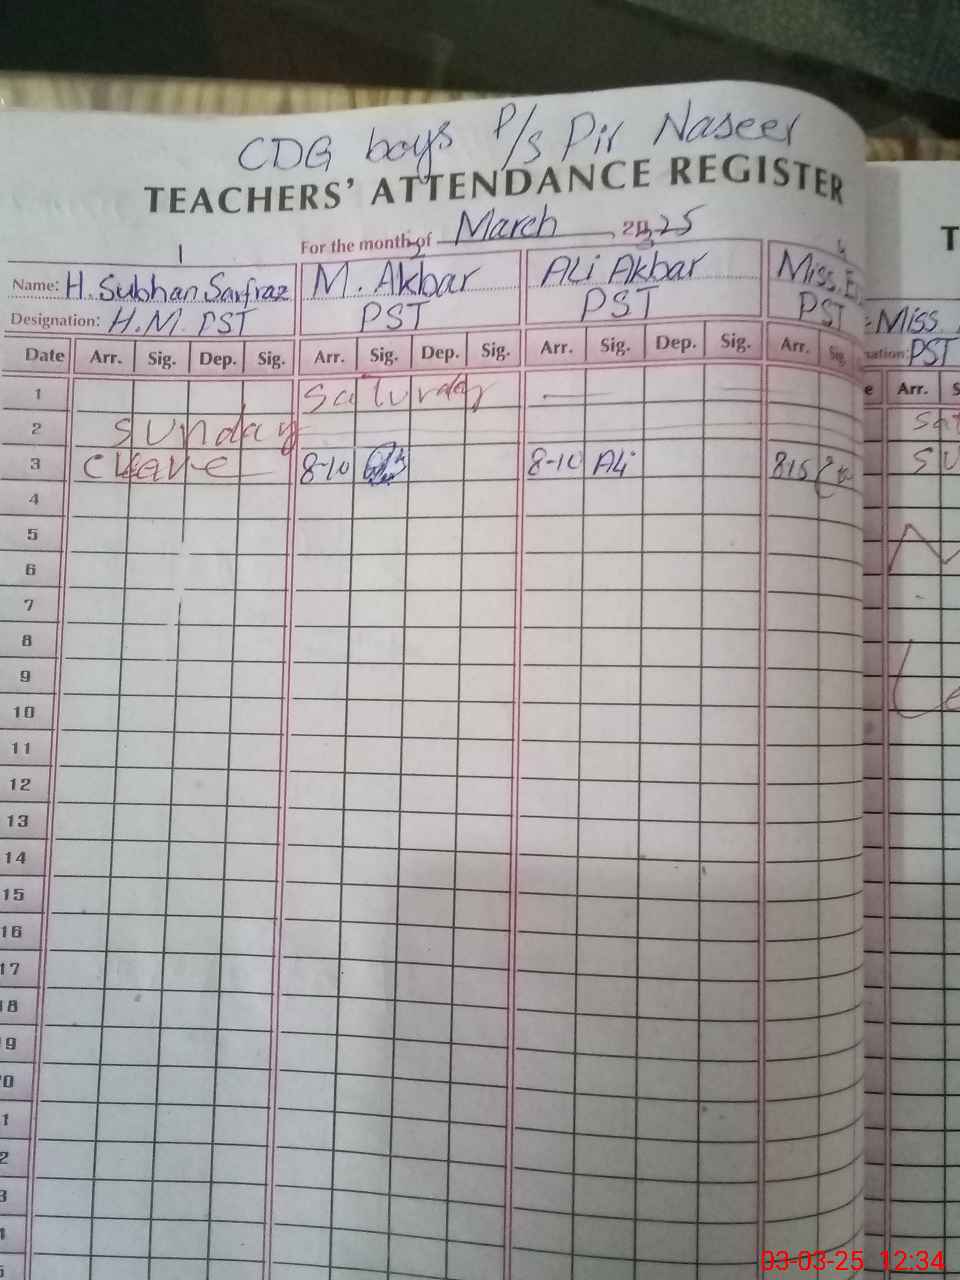 CDG boys P/s Pir Naseer
TEACHERS' ATTENDANCE REGISTER
T
1 For the month of March, 2025
Name: H. Subhan Sarfraz M. Akbar ALi Akbar Miss. Miss
Designation: H.M. PST PST PST PST nation: PST
Date Arr. Sig. Dep. Sig. Arr. Sig. Dep. Sig. Arr. Sig. Dep. Sig. Arr. Sig. e Arr. S
1 Saturday Sat
2 Sunday Su
3 C leave 8-10 8-10 Ali 815
4
5
6
7
8
9
10
11
12
13
14
15
16
17
18
9
0
1
2
3
03-03-25 12:34